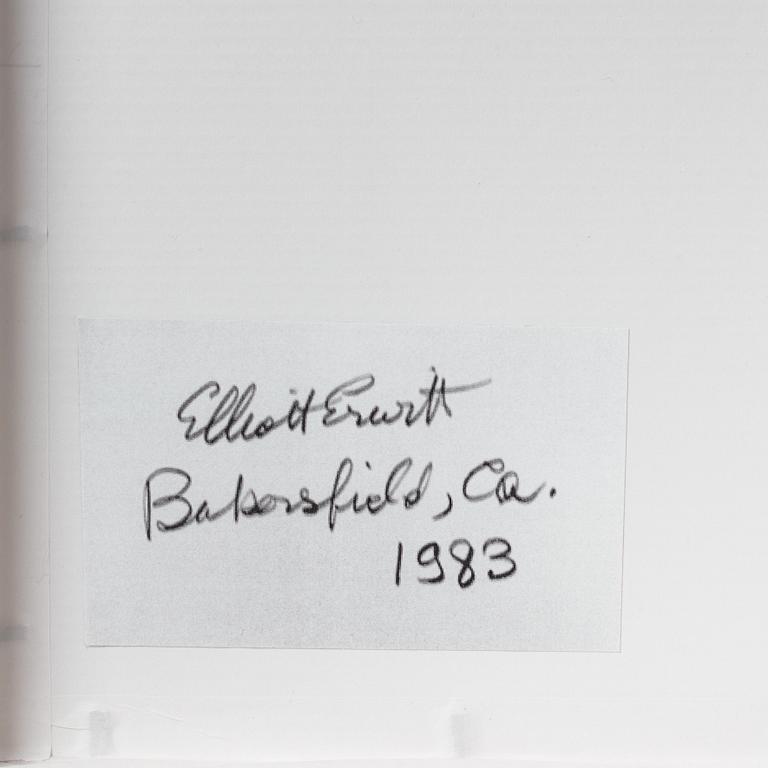 Elliott Erwitt
Bakersfield, Ca.
1983